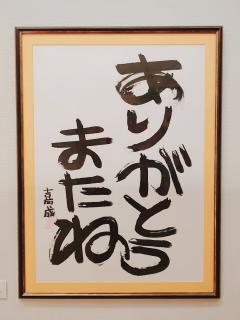 ありがとう
またね
嘉成